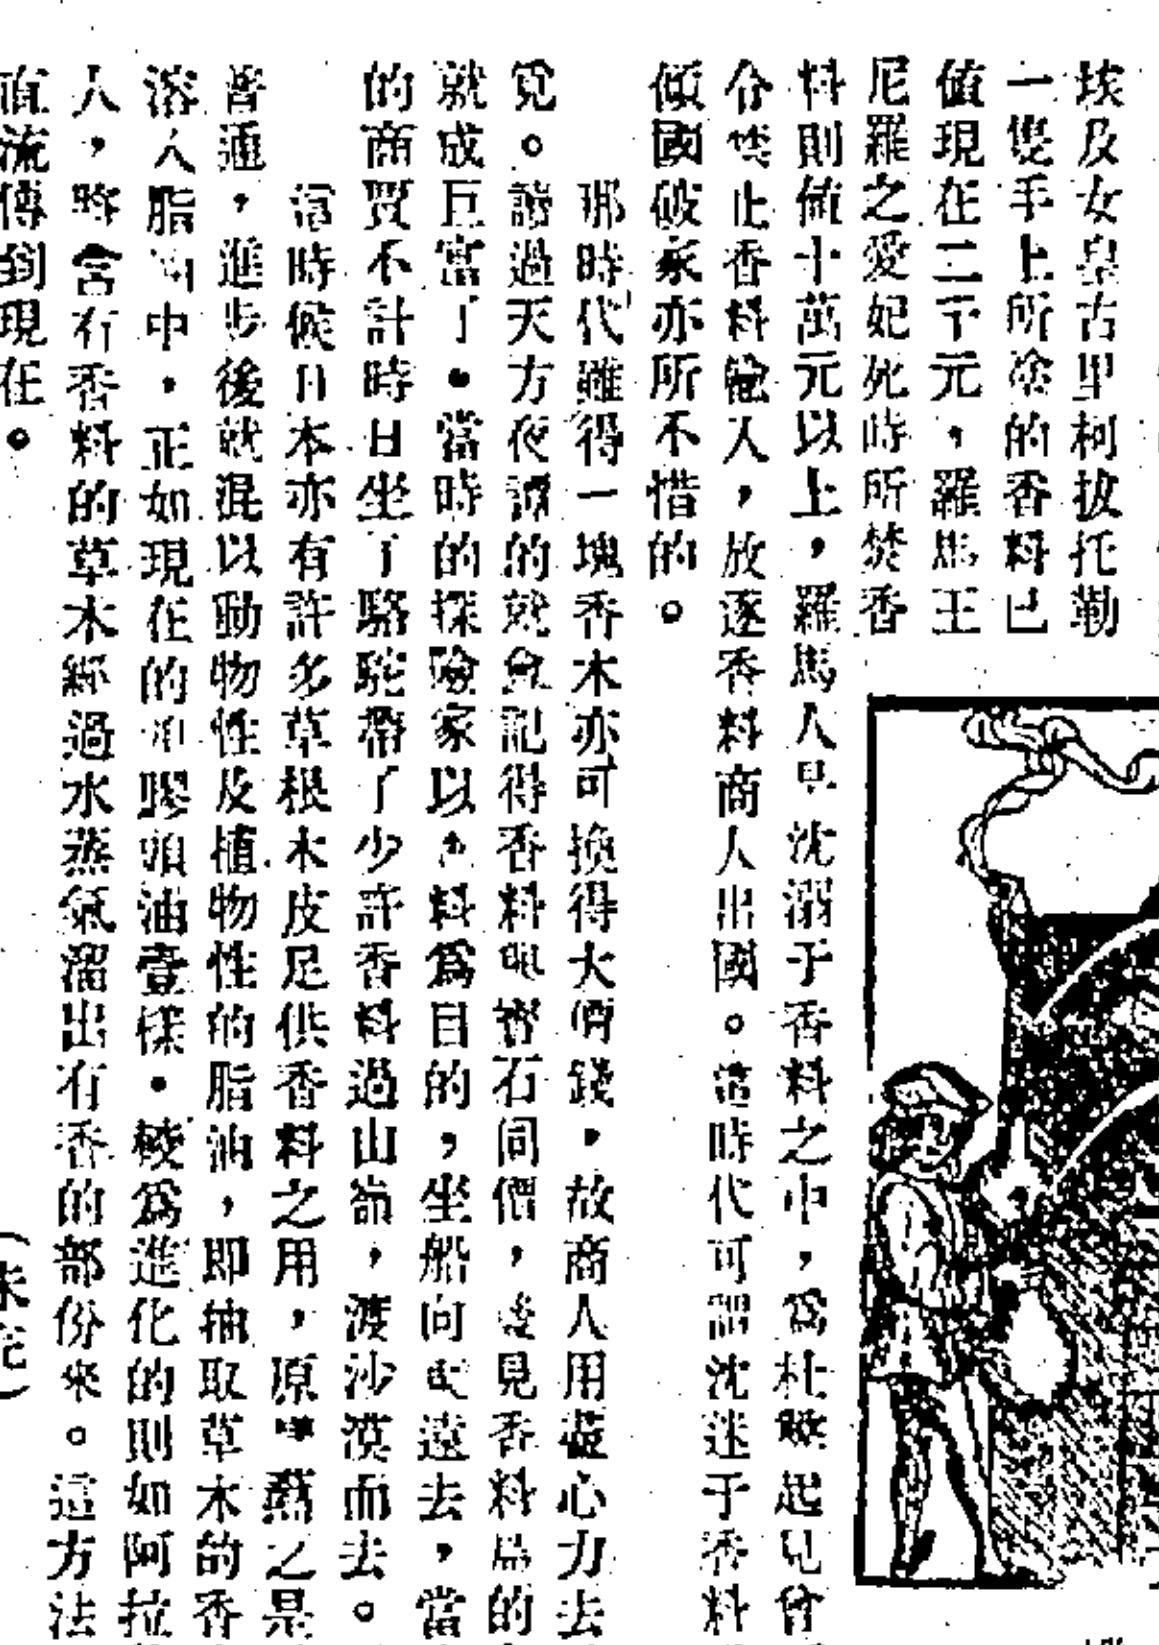 埃及女皇古里柯拔托勒
一隻手上所塗的香料已
値現在二千元，羅馬王
尼羅之愛妃死時所焚香
料則値十萬元以上，羅馬人 沈溺于香料之中，爲杜 起見曾
令禁止香料輸入，放逐香料商人出國。這時代可謂沈迷于香料
傾國破家亦所不惜的。
那時代雖得一塊香木亦可換得大價錢，故商人用盡心力去
覓。讀過天方夜譚的就會記得香料與寶石同價， 見香料 的
就成巨富了。當時的探險家以香料爲目的，坐船向 遠去，當
的商賈不計時日坐了駱駝帶了少許香料過山嶺，渡沙漠而去。
這時候日本亦有許多草根木皮足供香料之用，原 之是
普通，進步後就混以動物性及植物性的脂油，即抽取草木的香
溶入脂油中，正如現在的 膠 油壹樣。較爲進化的則如阿拉
人，將含有香料的草木經過水蒸氣溜出有香的部份來。這方法
直流傳到現在。
（未完）